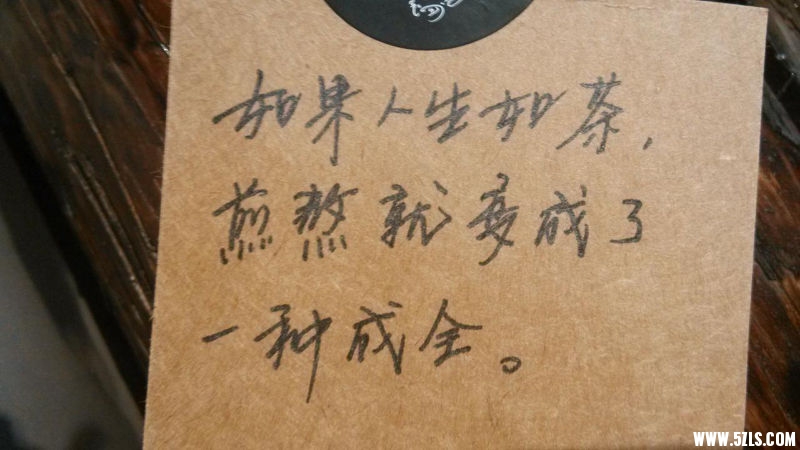 如果人生如茶,
煎熬就变成了
一种成全。
WWW.5ZLS.COM